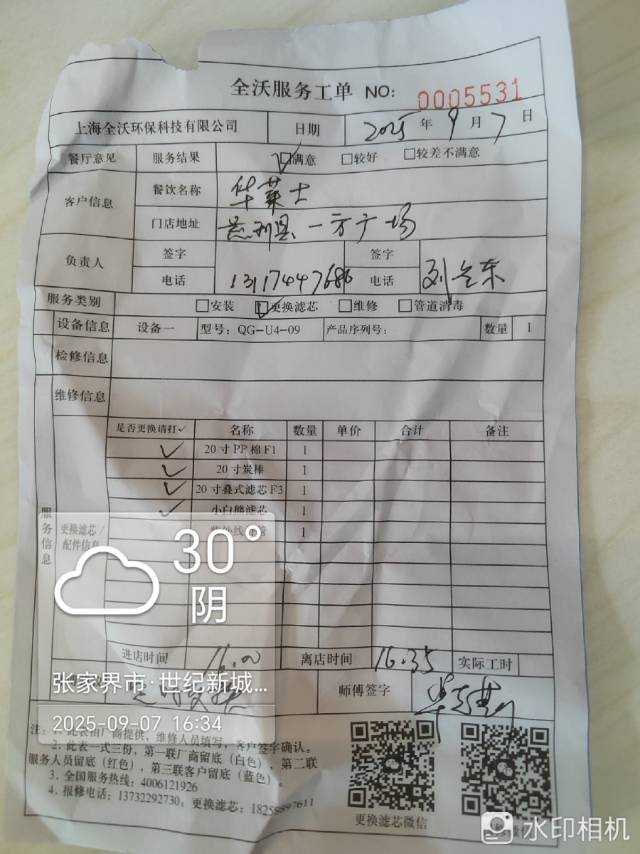 全沃服务工单 NO: 0005531
上海全沃环保科技有限公司 日期 2025 年 9 月 7 日
餐厅意见 服务结果 □满意 □较好 □较差不满意
客户信息 餐饮名称 华莱士
门店地址 慈利县一方广场
负责人 签字 签字
电话 13174447686 电话
服务类别 □安装 □更换滤芯 □维修 □管道消毒
设备信息 设备一 型号: QG-U4-09 产品序列号: 数量 1
检修信息
维修信息
服务信息 更换滤芯/配件信息
是否更换请打✓ 名称 数量 单价 合计 备注
✓ 20寸PP棉F1 1
✓ 20寸炭棒 1
✓ 20寸叠式滤芯F3 1
✓ 小白熊滤芯 1
1
30°
阴
进店时间 16:00 离店时间 16:35 实际工时
张家界市·世纪新城...
师傅签字
2025-09-07 16:34
注: 1. 此表由厂商提供, 维修人员填写, 客户签字确认。
2. 此表一式三份, 第一联厂商留底（白色）, 第二联
服务人员留底（红色）, 第三联客户留底（蓝色）。
3. 全国服务热线: 4006121926
4. 报修电话: 13732292730, 更换滤芯:
更换滤芯微信
水印相机